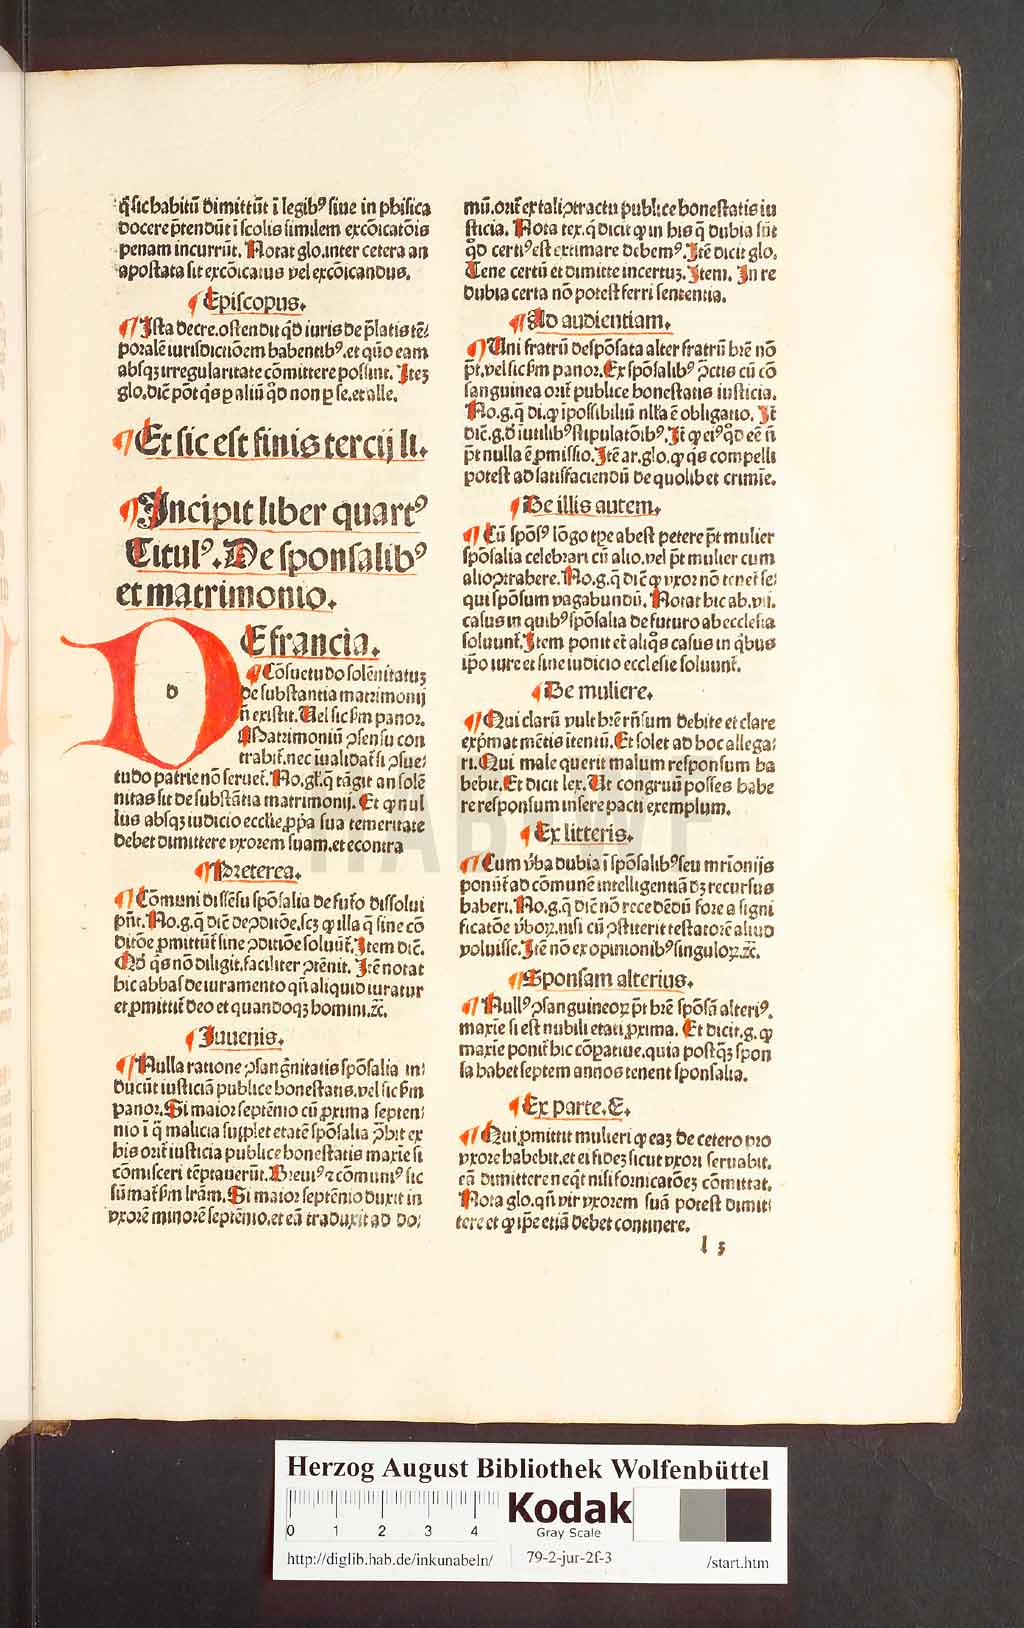 q̄ sic habitū dimittūt ī legibꝰ siue in phisica
docere p̄tendūt ī scolis similem excōicatōis
penam incurrūt. Notat glo. inter cetera an
apostata sit excōicatus vel excōicandus.
¶ Episcopus.
¶ Ista decre. ostendit qd̄ iuris de p̄latis tē⸗
poralē iurisdictiōem habentibꝰ. et quō eam
absqꝫ irregularitate cōmittere possunt. Iteꝫ
glo. dic̄ pōt q̄s ꝑ aliū qd̄ non ꝑ se. et alle.
¶ Et sic est finis tercij li.
¶ Incipit liber quartꝰ
Titulꝰ. De sponsalibꝰ
et matrimonio.
DE francia.
¶ Cōsuetudo solēnitatuꝫ
de substantia matrimonij
nō existit. Vel sic ẜm panor.
Matrimoniū ↄsensu con
trahit̄. nec īualidat̄ si ↄsue⸗
tudo patrie nō seruet̄. No. gl. q̄ tāgit an solē
nitas sit de substātia matrimonij. Et ꝙ nul
lus absqꝫ iudicio ecclīe ꝓpa sua temeritate
debet dimittere vxorem suam. et econtra
¶ Preterea.
¶ Cōmuni dissēsu spōsalia de futō dissolui
pn̄t. No. g. q̄ dic̄ de ↄditōe. scꝫ ꝙ illa q̄ sine cō
ditōe ꝓmittūt̄ sine ↄditiōe soluūt̄. Item dic̄.
Qd̄ q̄s nō diligit. faciliter ↄtēnit. Itē notat
hic abbas de iuramento qn̄ aliquid iuratur
et ꝓmittit̄ deo et quandoqꝫ homini. ⁊c̄.
¶ Iuuenis.
¶ Nulla ratione ↄsanḡnitatis spōsalia in⸗
ducūt iusticiā publice honestatis. vel sic ẜm
panor. Si maior septēnio cū ꝓxima septen⸗
nio ī q̄ malicia supplet etatē spōsalia ↄ̄hit ex
his orit̄ iusticia publice honestatis maxie si
cōmisceri tēptauerūt. Breuiꝰ ⁊ cōmuniꝰ sic
sūmat̄ ẜm lrām. Si maior septēnio duxit in
vxorē minorē septēnio. et eā traduxit ad do⸗
mū. orit̄ ex tali ↄtractu publice honestatis iu
sticia. Nota tex. q̄ dicit ꝙ in his q̄ dubia sūt
qd̄ certiꝰ est extimare debemꝰ. Itē dicit glo.
Tene certū et dimitte incertuꝫ. Item. In re
dubia certa nō potest ferri sententia.
¶ Ad audientiam.
¶ Vni fratrū despōsata alter fratrū hr̄e nō
p̄t. vel sic ẜm panor. Ex spōsalibꝰ ↄctis cū cō
sanguinea orit̄ publice honestatis iusticia.
No. g. q̄ di. ꝙ īpossibiliū nll̄a ē obligatio. It̄
dic̄. g. d̄ iutilibꝰ stipulatōibꝰ. It̄ ꝙ eiꝰ qd̄ eē n̄
p̄t nulla ē ꝓmissio. Itē ar. glo. ꝙ q̄s compelli
potest ad satisfaciendū de quolibet crimīe.
¶ De illis autem.
¶ Cū spōsꝰ lōgo tp̄e abest petere p̄t mulier
spōsalia celebrari cū alio. vel p̄t mulier cum
alio ↄtrahere. No. g. q̄ dic̄ ꝙ vxor nō tenet̄ se⸗
qui spōsum vagabundū. Notat hic ab. vii.
casus in quibꝰ spōsalia de futuro ab ecclesia
soluunt̄. Item ponit et̄ aliq̄s casus in q̄bus
ip̄o iure et sine iudicio ecclesie soluunt̄.
¶ De muliere.
¶ Qui clarū vult hr̄e rn̄sum debite et clare
exp̄mat mētis itentū. Et solet ad hoc allega⸗
ri. Qui male querit malum responsum ha
bebit. Et dicit lex. Ut congruū posses habe
re responsum insere pacti exemplum.
¶ Ex litteris.
¶ Cum v̄ba dubia ī spōsalibꝰ seu mr̄ionijs
ponūt̄ ad cōmunē intelligentiā dꝫ recursus
haberi. No. g. q̄ dic̄ nō recedēdū fore a signi
ficatōe v̄boꝝ. nisi cū ↄstiterit testatorē aliud
voluisse. Itē nō ex opinionibꝰ singuloꝝ. ⁊c̄.
¶ Sponsam alterius.
¶ Nullꝰ ↄsanguineoꝝ p̄t hr̄e spōsā alteriꝰ.
maxīe si est nubili etati ꝓxima. Et dicit. g. ꝙ
maxīe ponit̄ hic cōpatiue. quia postq̄ꝫ spon
sa habet septem annos tenent sponsalia.
¶ Ex parte. E.
¶ Qui ꝓmittit mulieri ꝙ eaꝫ de cetero pro
vxore habebit. et ei fideꝫ sicut vxori seruabit.
eā dimittere neqt̄ nisi fornicatōeꝫ cōmittat.
Nota glo. qn̄ vir vxorem suā potest dimit⸗
tere et ꝙ ip̄e etiā debet continere.
l 3
HAB WF
Herzog August Bibliothek Wolfenbüttel
0 1 2 3 4
Kodak
Gray Scale
http://diglib.hab.de/inkunabeln/ 79-2-jur-2f-3 /start.htm